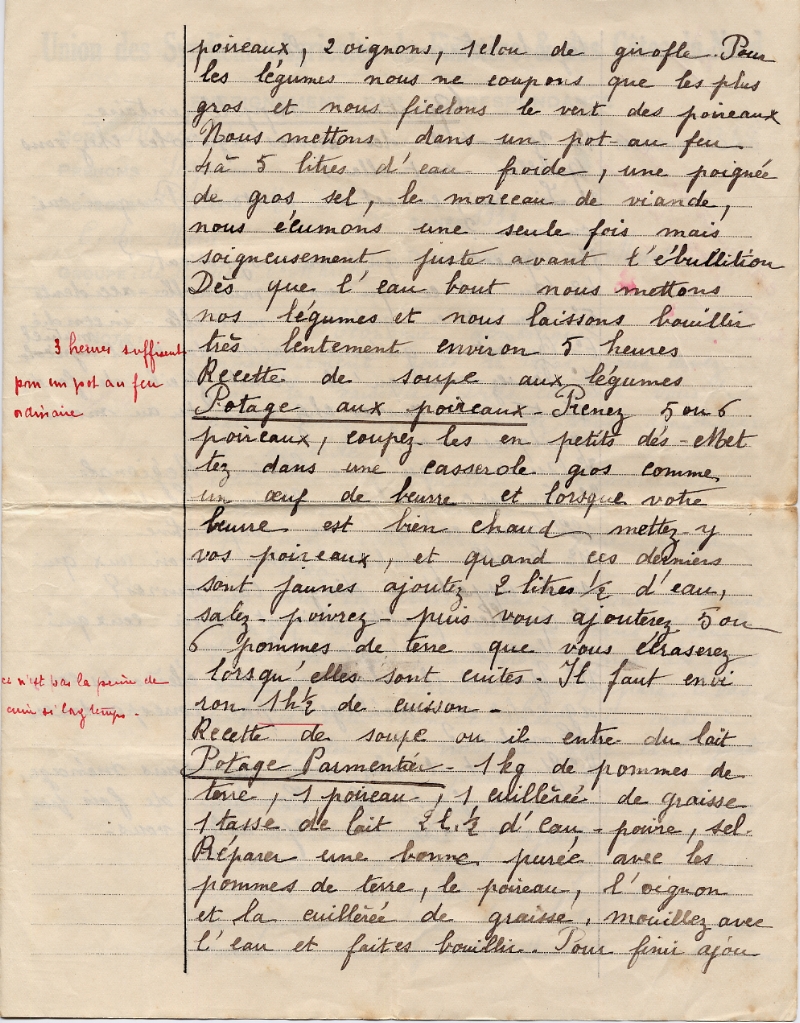 poireaux, 2 oignons, 1 clou de girofle. Pour
les légumes nous ne coupons que les plus
gros et nous ficelons le vert des poireaux
Nous mettons dans un pot-au feu
4 à 5 litres d'eau froide, une poignée
de gros sel, le morceau de viande,
nous écumons une seule fois mais
soigneusement juste avant l'ébullition
Dès que l'eau bout nous mettons
nos légumes et nous laissons bouillir
très lentement environ 5 heures
3 heures suffisent
pour un pot au feu
ordinaire
Recette de soupe aux légumes
Potage aux poireaux - Prenez 5 ou 6
poireaux, coupez-les en petits dés - Met
tez dans une casserole gros comme
un œuf de beurre et lorsque votre
beurre est bien chaud mettez-y
vos poireaux, et quand ces derniers
sont jaunes ajoutez 2 litres ½ d'eau,
salez - poivrez - puis vous ajouterez 5 ou
6 pommes de terre que vous écraserez
lorsqu'elles sont cuites. Il faut envi
ron 1h½ de cuisson -
ce n'est pas la peine de
cuire si longtemps -
Recette de soupe ou il entre du lait
Potage Parmentier - 1 kg de pommes de
terre, 1 poireau, 1 cuillèrée de graisse
1 tasse de lait 2 l. ½ d'eau - poivre, sel.
Réparer une bonne purée avec les
pommes de terre, le poireau, l'oignon
et la cuillèrée de graisse, mouillez avec
l'eau et faites bouillir. Pour finir ajou